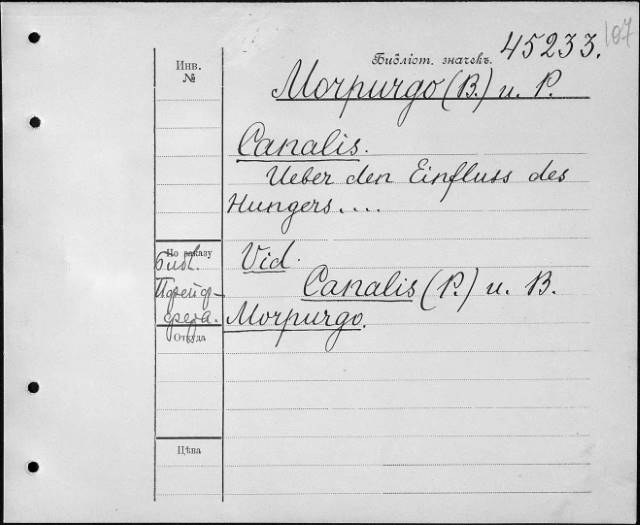 107
45233.
Инв.
№
Библіот. значекъ.
Morpurgo (B.) u. P.
Canalis.
Ueber den Einfluss des
Hungers....
По заказу
Библ.
Vid.
Canalis (P.) u. B.
Morpurgo.
Откуда
Цѣна